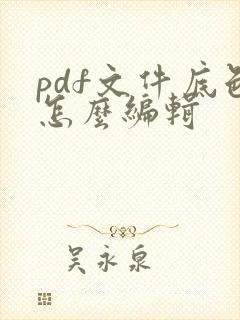 pdf文件底色
怎麼編輯
吴永泉